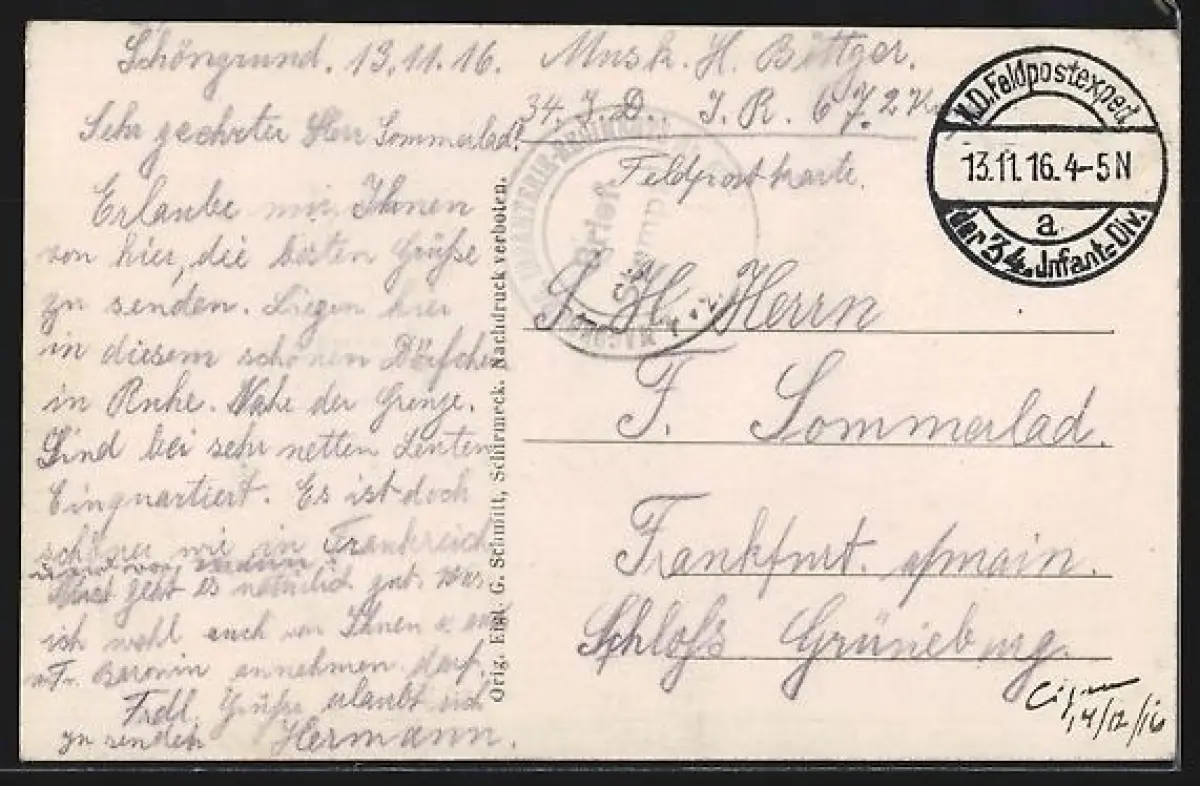 Schöngrund. 13.11.16.
Sehr geehrter Herr Sommerlad!
Erlaube mir Ihnen
von hier, die besten Grüße
zu senden. Liegen hier
in diesem schönen Dörfchen
in Ruhe. Nahe der Grenze.
Sind bei sehr netten Leuten
Einquartiert. Es ist doch
schöner wie in Frankreich
geht es natürlich gut. Was
ich wohl auch von Ihnen u.
Fr. Baronin annehmen darf.
Frdl. Grüße erlaubt sich
zu senden Hermann.
Orig. Eigt. G. Schmitt, Schirmeck. Nachdruck verboten.
Musk. H. Böttger.
34. I.D.. I.R. 67. 2
Feldpostkarte.
Brief
Stempel
K.D. Feldpostexped.
13.11.16.4-5N
a
der 34. Infant.-Div.
S. H. Herrn
F. Sommerlad.
Frankfurt a/main.
Schloß Grüneburg.
14/12/16